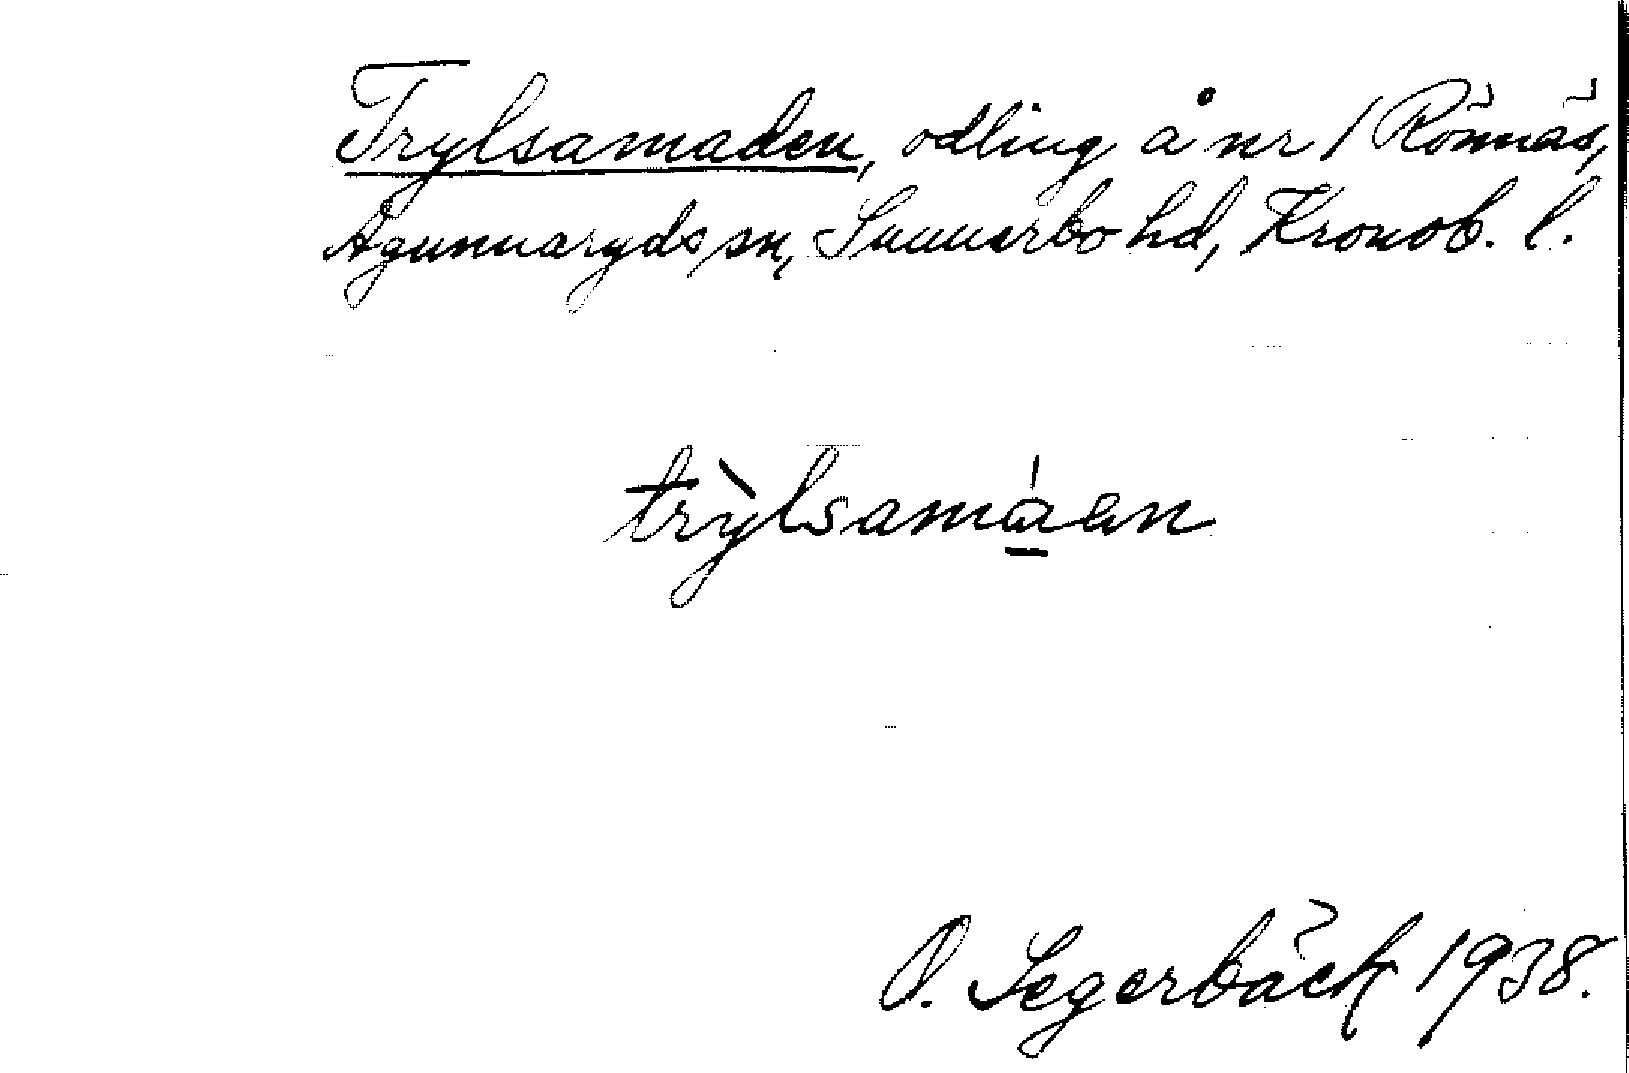 Trylsamaden, odling å nr 1 Rönnäs,
Agunnaryds sn, Sunnerbo hd, Kronob. l.
trỳlsamá̱en
O. Segerbäck 1938.